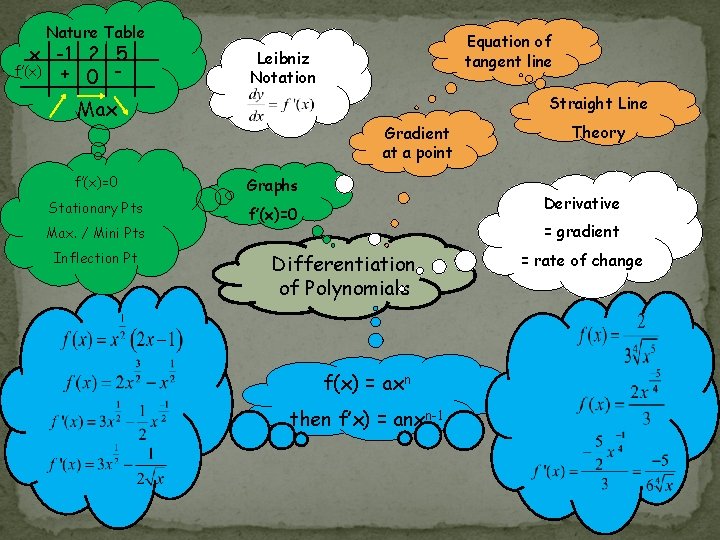 Nature Table
x -1 2 5
f'(x) + 0 -
Max
Leibniz
Notation
dy/dx = f'(x)
Equation of
tangent line
Straight Line
Theory
Gradient
at a point
f'(x)=0
Stationary Pts
Max. / Mini Pts
Inflection Pt
Graphs
f'(x)=0
Derivative
= gradient
= rate of change
Differentiation
of Polynomials
f(x) = axⁿ
then f'x) = anxⁿ⁻¹
f(x) = x^(1/2) (2x − 1)
f(x) = 2x^(3/2) − x^(1/2)
f'(x) = 3x^(1/2) − 1/2 x^(-1/2)
f'(x) = 3x^(1/2) − 1/(2√x)
f(x) = 2/(3 ⁴√x⁵)
f(x) = 2x^(-5/4)/3
f'(x) = (-5/2 x^(-1/4))/3 = -5/(6 ⁴√x)